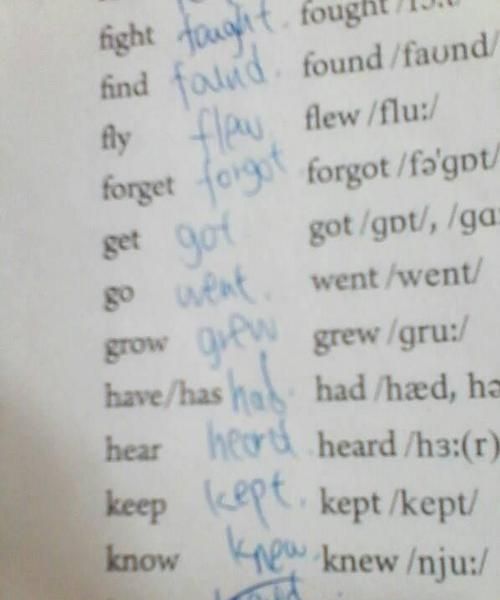 fight fought. fought
find found. found /faʊnd/
fly flew flew /flu:/
forget forgot forgot /fə'gɒt/
get got got /gɒt/, /gɑ:
go went. went /went/
grow grew grew /gru:/
have/has had. had /hæd, hə
hear heard. heard /hɜ:(r)
keep kept. kept /kept/
know knew. knew /nju:/